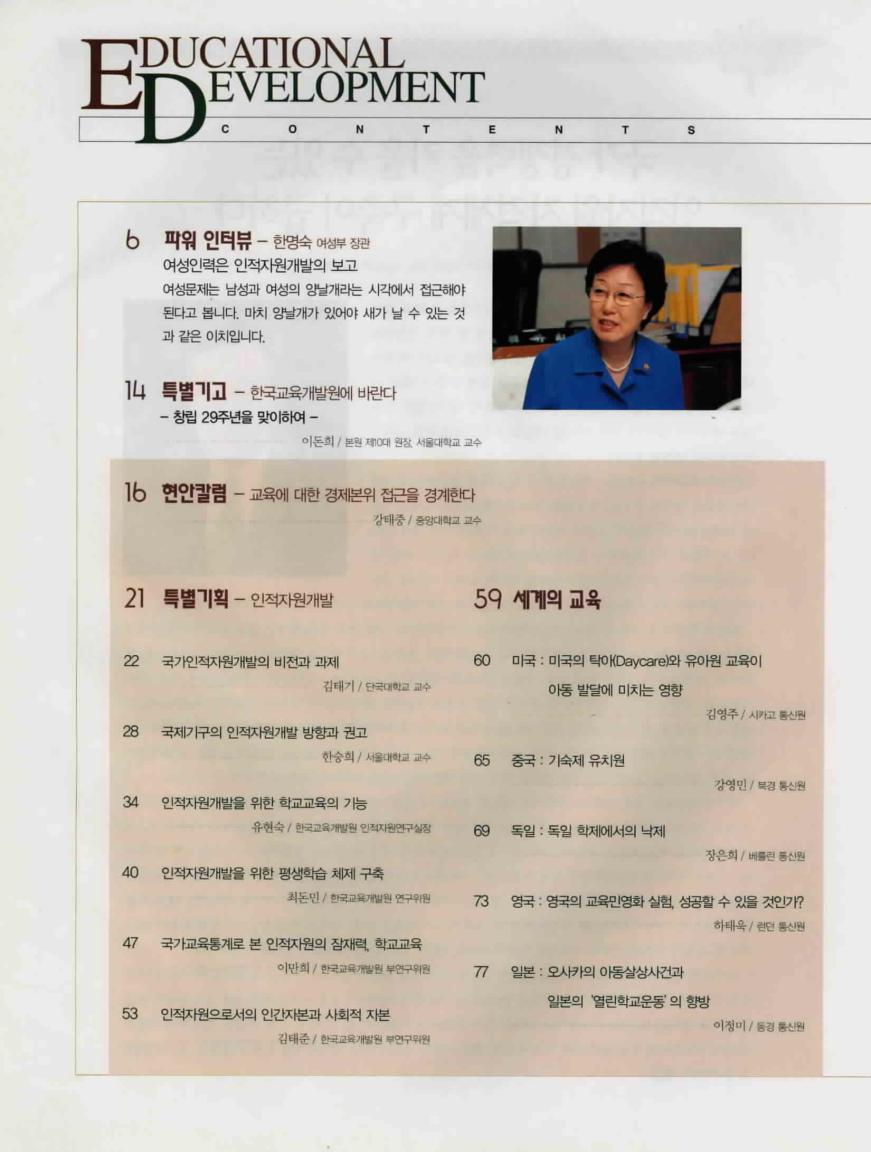 EDUCATIONAL
DEVELOPMENT
CONTENTS
6 파워 인터뷰 – 한명숙 여성부 장관
여성인력은 인적자원개발의 보고
여성문제는 남성과 여성의 양날개라는 시각에서 접근해야
된다고 봅니다. 마치 양날개가 있어야 새가 날 수 있는 것
과 같은 이치입니다.
14 특별기고 – 한국교육개발원에 바란다
– 창립 29주년을 맞이하여 –
이돈희 / 본원 제10대 원장, 서울대학교 교수
16 현안칼럼 – 교육에 대한 경제본위 접근을 경계한다
강태중 / 중앙대학교 교수
21 특별기획 – 인적자원개발
22 국가인적자원개발의 비전과 과제
김태기 / 단국대학교 교수
28 국제기구의 인적자원개발 방향과 권고
한숭희 / 서울대학교 교수
34 인적자원개발을 위한 학교교육의 기능
유현숙 / 한국교육개발원 인적자원연구실장
40 인적자원개발을 위한 평생학습 체제 구축
최돈민 / 한국교육개발원 연구위원
47 국가교육통계로 본 인적자원의 잠재력, 학교교육
이만희 / 한국교육개발원 부연구위원
53 인적자원으로서의 인간자본과 사회적 자본
김태준 / 한국교육개발원 부연구위원
59 세계의 교육
60 미국 : 미국의 탁아(Daycare)와 유아원 교육이
아동 발달에 미치는 영향
김영주 / 시카고 통신원
65 중국 : 기숙제 유치원
강영민 / 북경 통신원
69 독일 : 독일 학제에서의 낙제
장은희 / 베를린 통신원
73 영국 : 영국의 교육민영화 실험, 성공할 수 있을 것인가?
하태욱 / 런던 통신원
77 일본 : 오사카의 아동살상사건과
일본의 '열린학교운동' 의 향방
이정미 / 동경 통신원